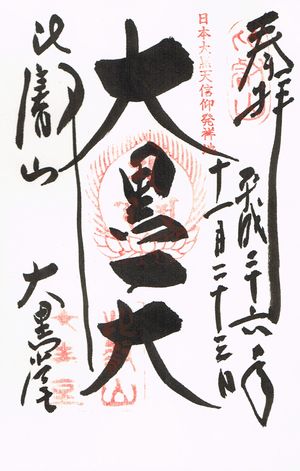 奉拝
平成二十六年
十一月二十三日
日本大黒天信仰発祥地
大黒天
比叡山
大黒堂